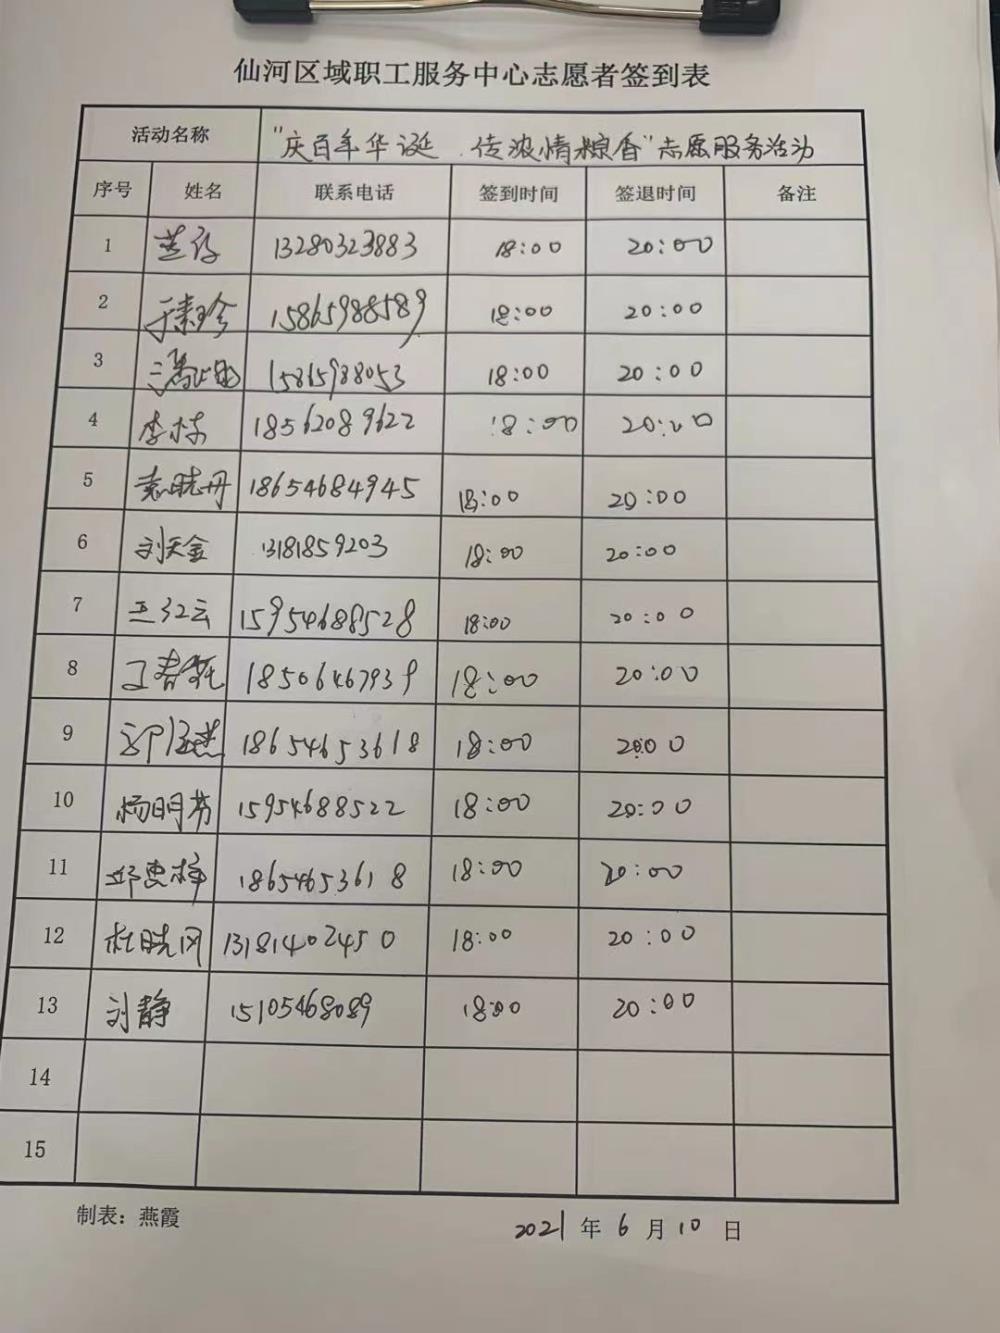 仙河区域职工服务中心志愿者签到表
活动名称 "庆百年华诞 传浓情粽香"志愿服务活动
序号 姓名 联系电话 签到时间 签退时间 备注
1 13280323883 18:00 20:00
2 于素珍 15865988589 18:00 20:00
3 15865988053 18:00 20:00
4 李栋 18562089622 18:00 20:00
5 袁晓丹 18654684945 18:00 20:00
6 刘天金 13181859203 18:00 20:00
7 王红云 15954688528 18:00 20:00
8 丁春 18506467939 18:00 20:00
9 18654653618 18:00 20:00
10 杨明芳 15954688522 18:00 20:00
11 18654653618 18:00 20:00
12 杜晓风 13181402450 18:00 20:00
13 刘静 15105468089 18:00 20:00
14
15
制表：燕霞 2021年6月10日